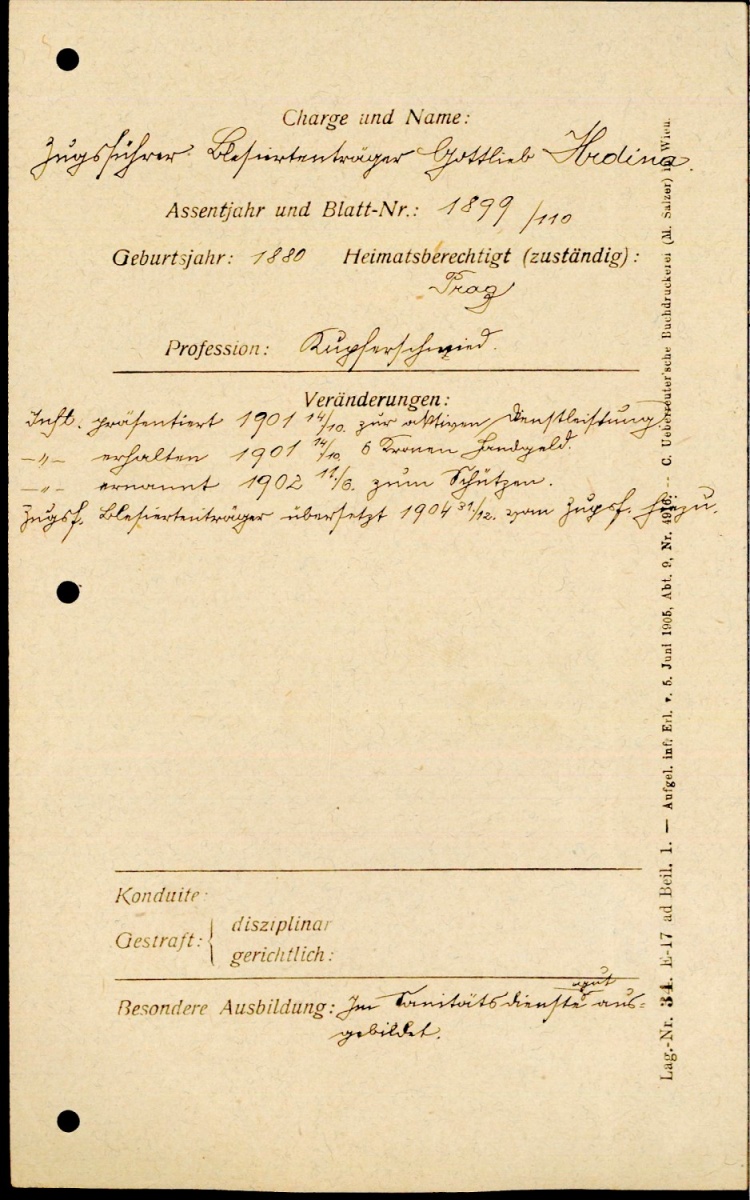 Charge und Name:
Zugsführer Blesiertenträger Gottlieb Hrdina.
Assentjahr und Blatt-Nr.: 1899/110
Geburtsjahr: 1880 Heimatsberechtigt (zuständig):
Prag
Profession: Kupferschmied.
Veränderungen:
Inft. präsentiert 1901 14/10. zur aktiven Dienstleistung.
-"- erhalten 1901 14/10. 6 Kronen Handgeld.
-"- ernannt 1902 11/6. zum Schützen.
Zugsf. Blesiertenträger übersetzt 1904 31/12. vom Zugsf.
Konduite:
Gestraft: disziplinar
gerichtlich:
Besondere Ausbildung: Im Sanitätsdienste gut aus-
gebildet.
Lag.-Nr. 34. E-17 ad Beil. 1. — Aufgel. inf. Erl. v. 5. Juni 1905, Abt. 9, Nr. 4916. — C. Ueberreuter'sche Buchdruckerei (M. Salzer) in Wien.